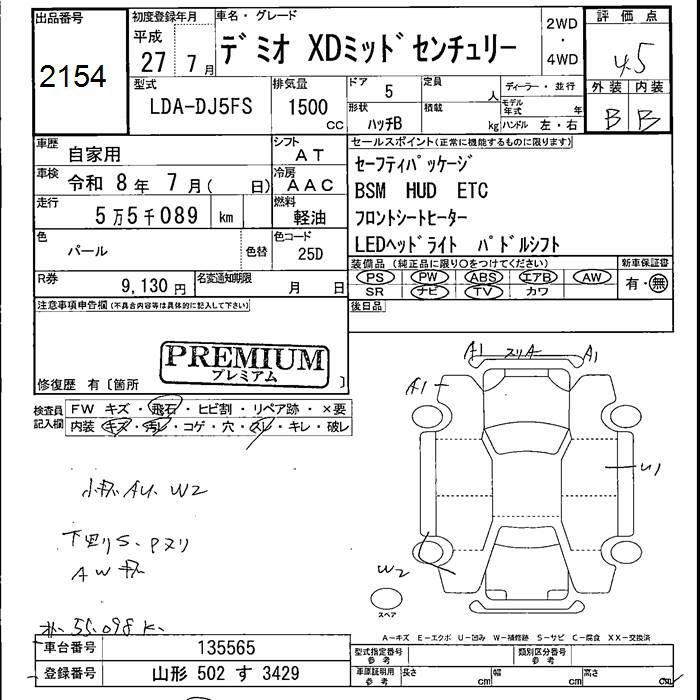 出品番号
2154
初度登録年月
平成
27 7月
車名・グレード
デミオ XDミッドセンチュリー
2WD
・
4WD
評価点
4.5
外装 内装
B B
型式
LDA-DJ5FS
排気量
1500
CC
ドア 5
形状
ハッチB
定員
人
積載
kg
ディーラー・並行
モデル
年式 年
ハンドル 左・右
車歴
自家用
シフト
AT
車検
令和 8年 7月( 日)
冷房
AAC
走行
5万5千089 km
燃料
軽油
色
パール
色替
色コード
25D
R券
9,130円
名変通知期限
月 日
セールスポイント(正常に機能するものに限ります)
セーフティパッケージ
BSM HUD ETC
フロントシートヒーター
LEDヘッドライト パドルシフト
装備品(純正品に限り○をつけてください)
PS PW ABS エアB AW
SR ナビ TV カワ
新車保証書
有・無
後日品
注意事項申告欄(不具合内容等は具体的に記入して下さい)
PREMIUM
プレミアム
修復歴 有〔箇所 〕
検査員
記入欄
FW キズ・飛石・ヒビ割・リペア跡・×要
内装・キズ・汚レ・コゲ・穴・スレ・キレ・破レ
A1 スリA A1
A1
U1
W2
小 AU. W2
下廻りS、Pヌリ
AW
55,098K
スペア
A−キズ E−エクボ U−凹み W−補修跡 S−サビ C−腐食 XX−交換済
車台番号
135565
登録番号
山形 502 す 3429
型式指定番号
参考
類別区分番号
参考
車庫証明用
参考
長さ cm
幅 cm
高さ cm